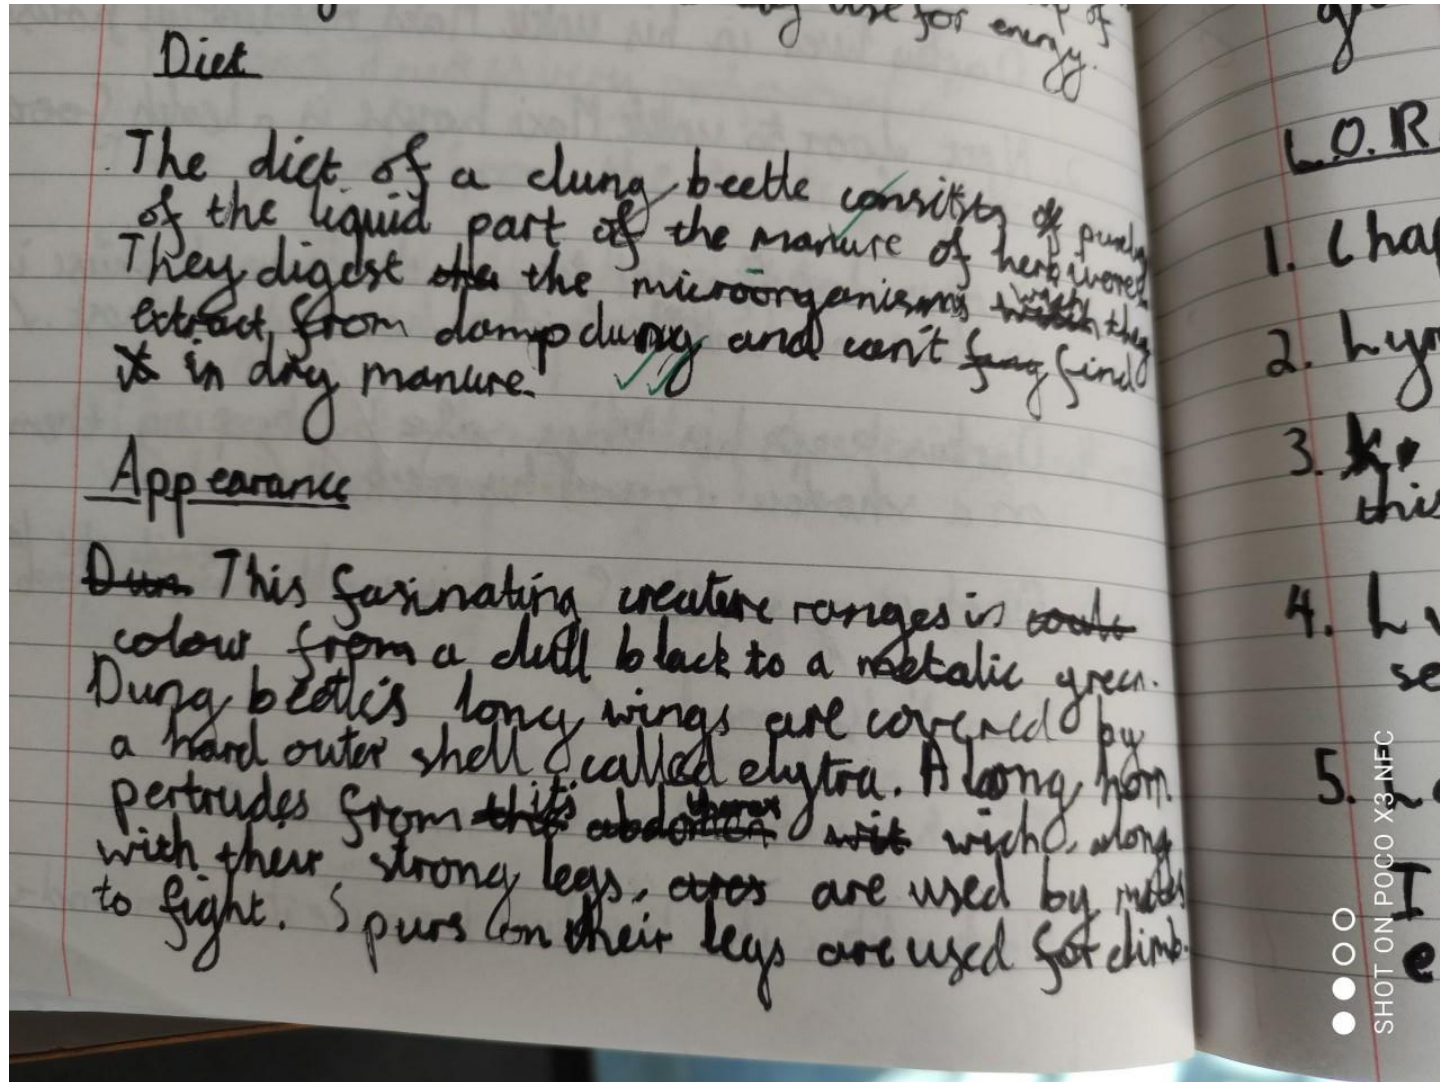 use for energy.
Diet
The diet of a dung beetle consists of purely
of the liquid part of the manure of herbivores.
They digest the the microorganisms which they
extract from damp dung and can't find
it in dry manure.
Appearance
Dun This fasinating creature ranges in
colour from a dull black to a metalic green.
Dung beetle's long wings are covered by
a hard outer shell called elytra. A long horn
pertrudes from this its abdomen thorax wit wich, along
with their strong legs, are used by males
to fight. Spurs on their legs are used for climb.
L.O.R
1. Chap
2. Lyr
3.
this
4. L
se
5.
I
e
SHOT ON POCO X3 NFC